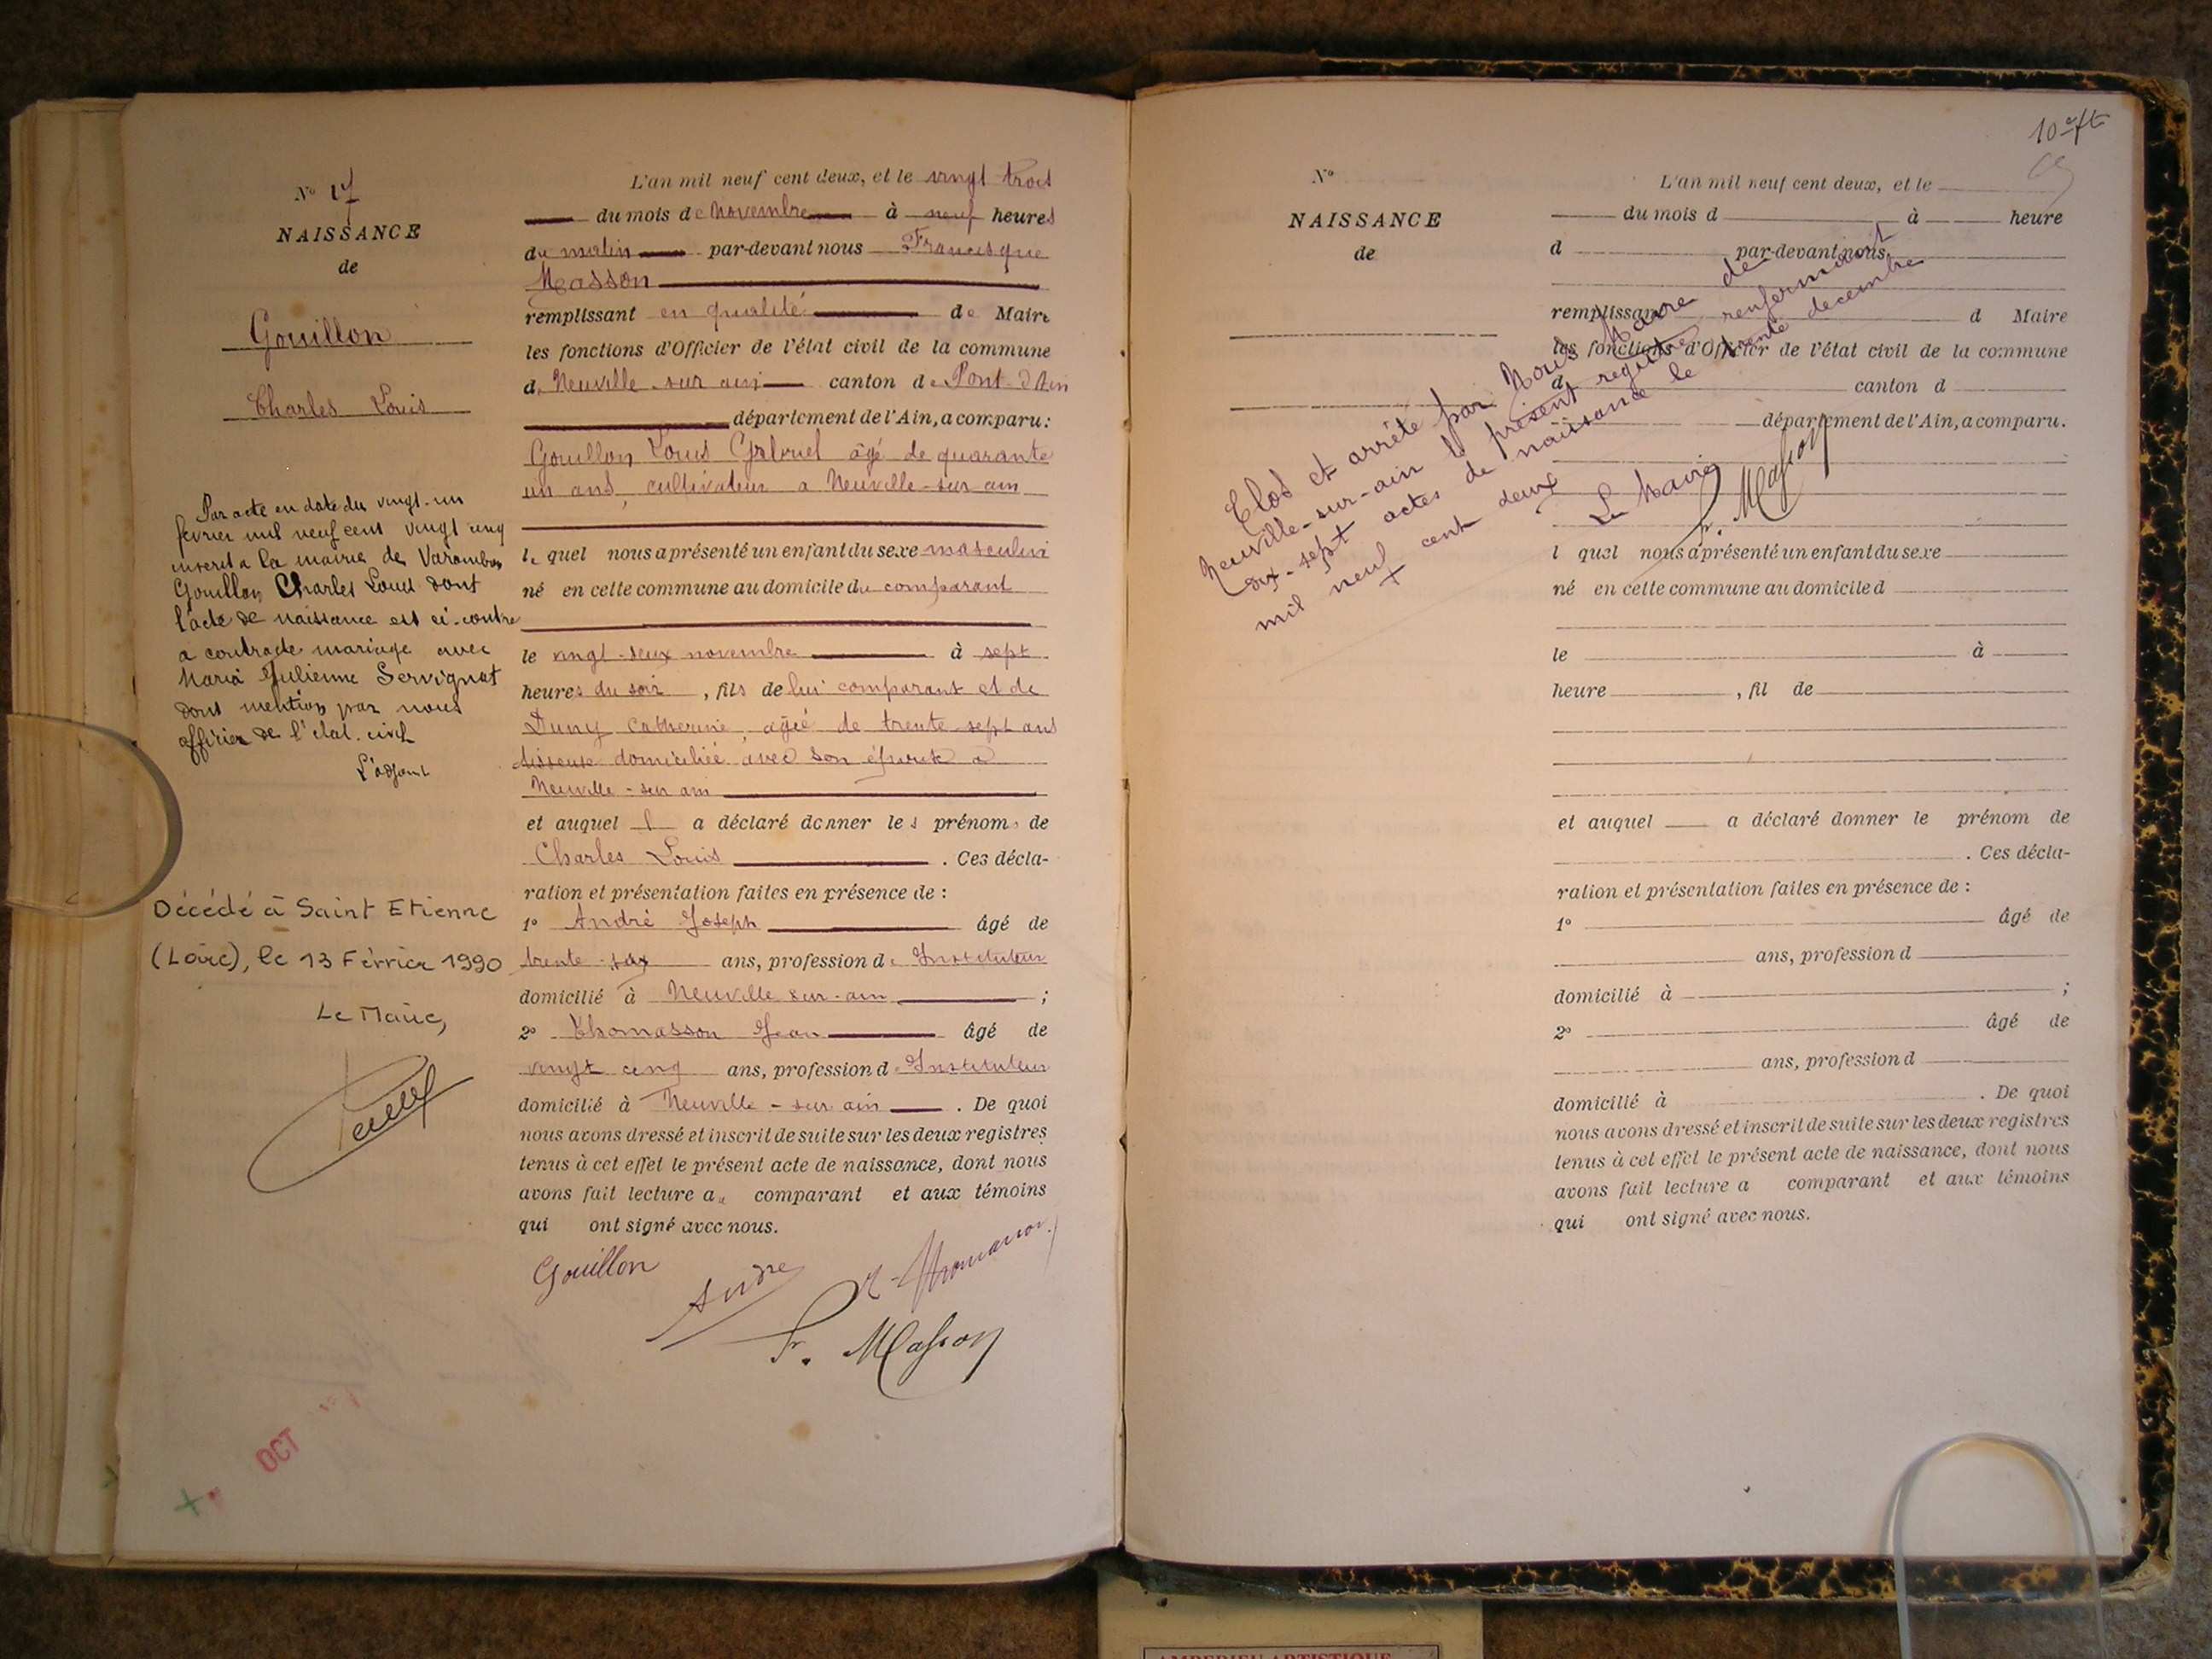 N° 17
NAISSANCE
de
Gouillon
Charles Louis
Par acte en date du vingt-un
février mil neuf cent vingt cinq
inscrit à la mairie de Varambon
Gouillon Charles Louis dont
l'acte de naissance est ci-contre
a contracté mariage avec
Maria Julienne Servignat
dont mention par nous
officier de l'état-civil
L'adjoint
Décédé à Saint Etienne
(Loire), le 13 Février 1990
Le Maire,
L'an mil neuf cent deux, et le vingt trois
du mois de Novembre à neuf heures
du matin par-devant nous Francisque
Masson
remplissant en qualité de Maire
les fonctions d'Officier de l'état civil de la commune
de Neuville-sur-ain canton de Pont d'Ain
département de l'Ain, a comparu:
Gouillon Louis Gabriel âgé de quarante
un ans, cultivateur a Neuville-sur ain
le quel nous a présenté un enfant du sexe masculin
né en cette commune au domicile du comparant
le vingt-deux novembre à sept
heures du soir, fils de lui comparant et de
Duny Catherine, agée de trente-sept ans
tisseuse domiciliée avec son époux a
Neuville-sur ain
et auquel il a déclaré donner les prénoms de
Charles Louis. Ces décla-
ration et présentation faites en présence de :
1° André Joseph âgé de
trente-six ans, profession d'Instituteur
domicilié à Neuville sur-ain ;
2° Thomasson Jean âgé de
vingt cinq ans, profession d'Instituteur
domicilié à Neuville-sur ain. De quoi
nous avons dressé et inscrit de suite sur les deux registres
tenus à cet effet le présent acte de naissance, dont nous
avons fait lecture au comparant et aux témoins
qui ont signé avec nous.
Gouillon
André
Thomasson
Fr. Masson
OCT
10e ft
N°
NAISSANCE
de
L'an mil neuf cent deux, et le
du mois d à heure
d par-devant nous
remplissant d Maire
les fonctions d'Officier de l'état civil de la commune
d canton d
département de l'Ain, a comparu.
Clos et arrêté par Nous Maire de
Neuville-sur-ain le présent registre renfermant
dix-sept actes de naissance le trente decembre
mil neuf cent deux
Le Maire
Fr. Masson
l quel nous a présenté un enfant du sexe
né en cette commune au domicile d
le à
heure , fil de
et auquel a déclaré donner le prénom de
. Ces décla-
ration et présentation faites en présence de :
1° âgé de
ans, profession d
domicilié à ;
2° âgé de
ans, profession d
domicilié à . De quoi
nous avons dressé et inscrit de suite sur les deux registres
tenus à cet effet le présent acte de naissance, dont nous
avons fait lecture a comparant et aux témoins
qui ont signé avec nous.